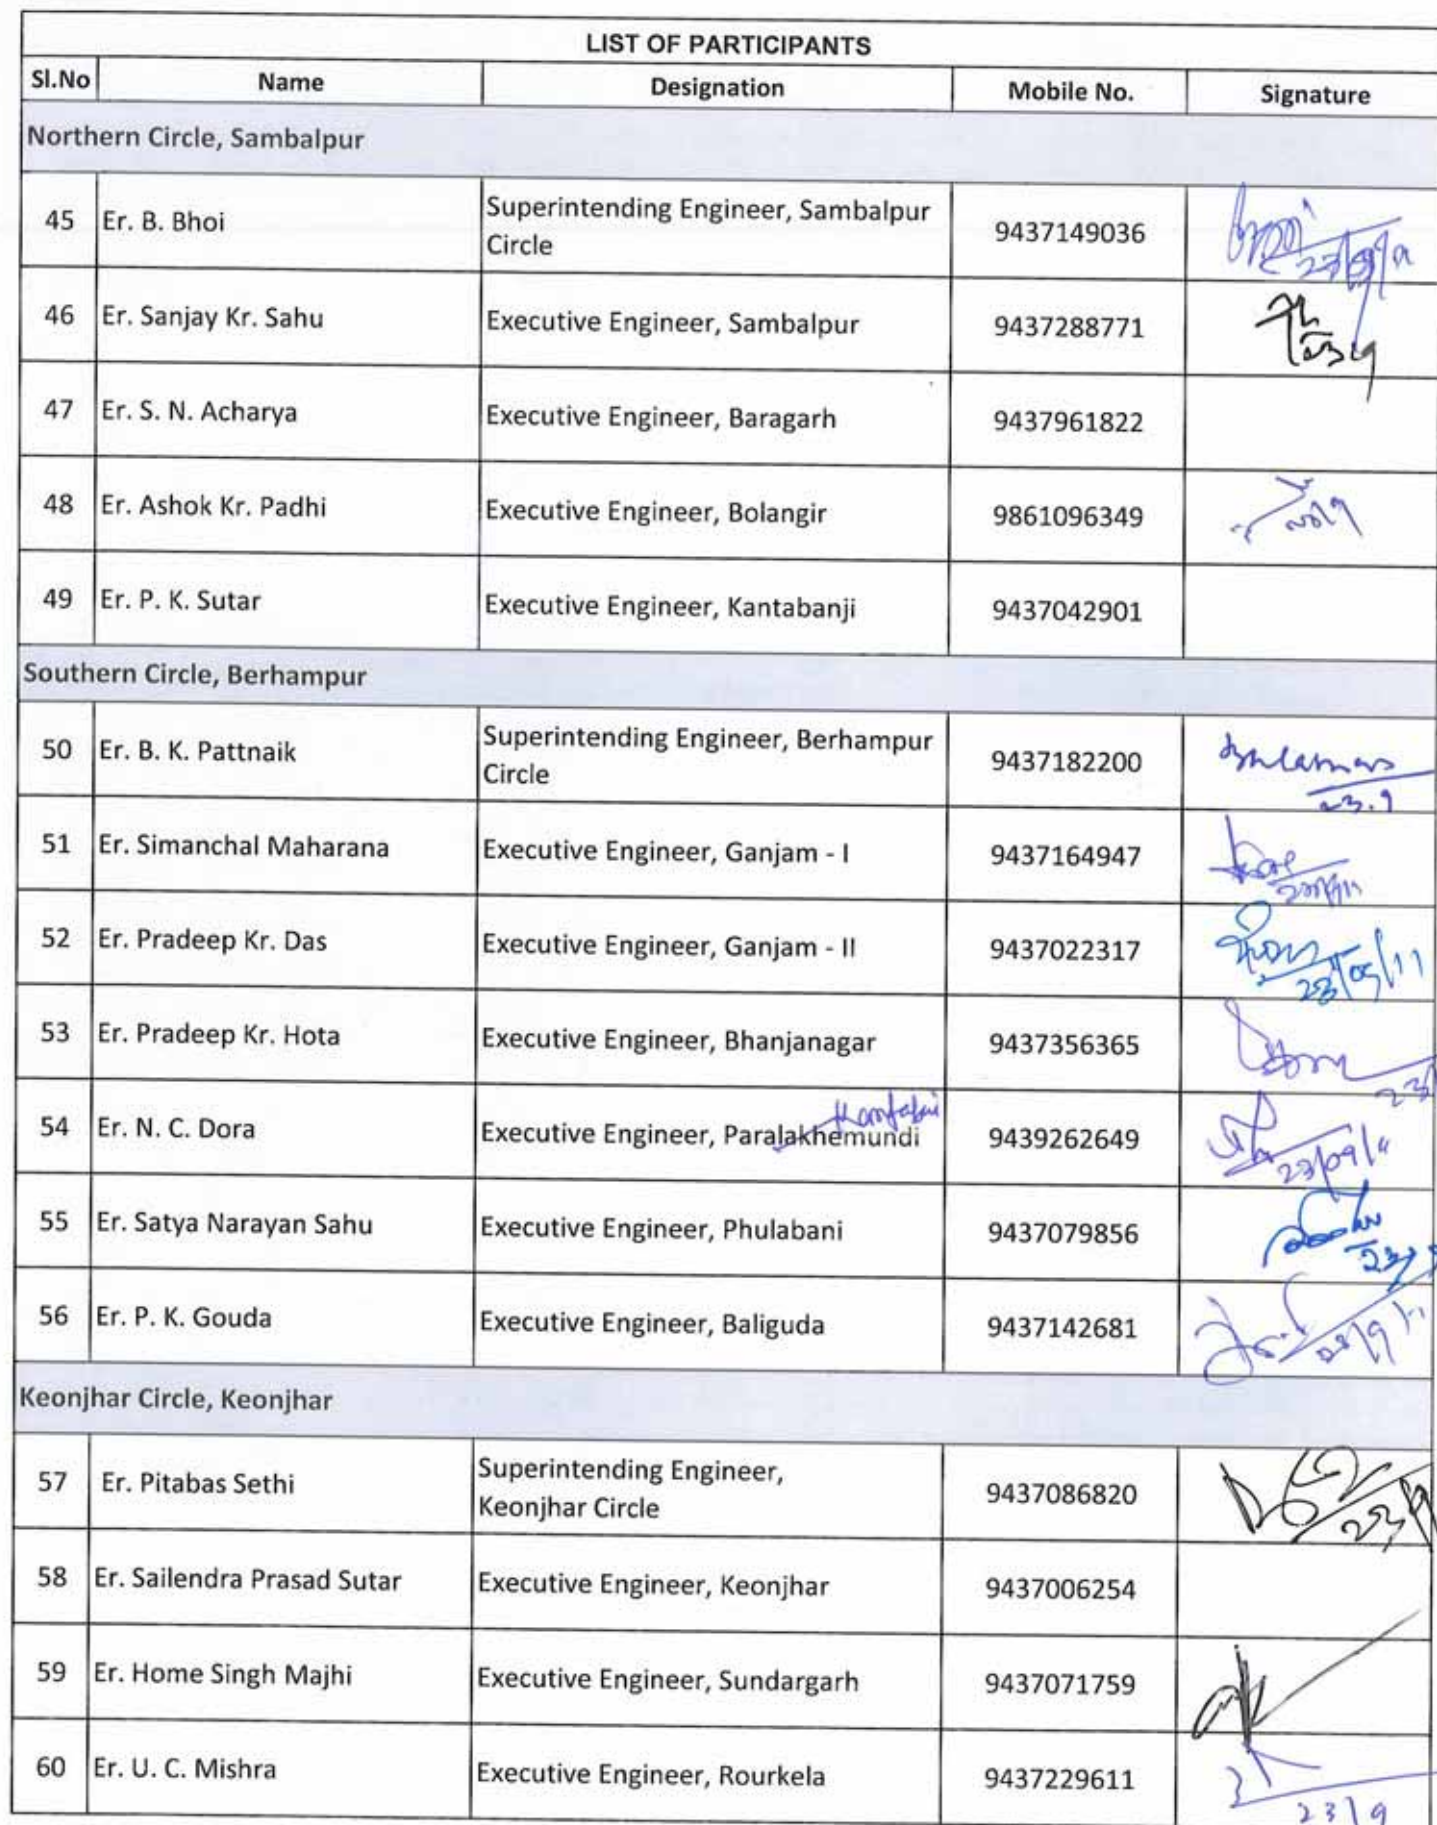 LIST OF PARTICIPANTS
Sl.No Name Designation Mobile No. Signature
Northern Circle, Sambalpur
45 Er. B. Bhoi Superintending Engineer, Sambalpur Circle 9437149036
46 Er. Sanjay Kr. Sahu Executive Engineer, Sambalpur 9437288771
47 Er. S. N. Acharya Executive Engineer, Baragarh 9437961822
48 Er. Ashok Kr. Padhi Executive Engineer, Bolangir 9861096349
49 Er. P. K. Sutar Executive Engineer, Kantabanji 9437042901
Southern Circle, Berhampur
50 Er. B. K. Pattnaik Superintending Engineer, Berhampur Circle 9437182200 23.9
51 Er. Simanchal Maharana Executive Engineer, Ganjam - I 9437164947
52 Er. Pradeep Kr. Das Executive Engineer, Ganjam - II 9437022317 23/09/11
53 Er. Pradeep Kr. Hota Executive Engineer, Bhanjanagar 9437356365
54 Er. N. C. Dora Executive Engineer, Paralakhemundi 9439262649 23/09/11
55 Er. Satya Narayan Sahu Executive Engineer, Phulabani 9437079856
56 Er. P. K. Gouda Executive Engineer, Baliguda 9437142681 23/9/11
Keonjhar Circle, Keonjhar
57 Er. Pitabas Sethi Superintending Engineer, Keonjhar Circle 9437086820 23/9
58 Er. Sailendra Prasad Sutar Executive Engineer, Keonjhar 9437006254
59 Er. Home Singh Majhi Executive Engineer, Sundargarh 9437071759
60 Er. U. C. Mishra Executive Engineer, Rourkela 9437229611 23/9